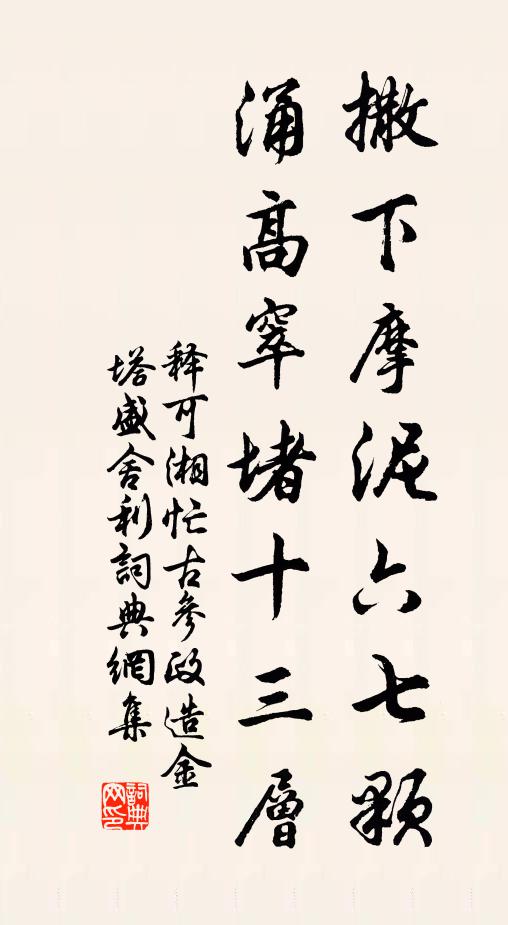 撒下摩泥六七顆
涌高窣堵十三層
釋可湘忙古參政造金
塔盛舍利詞典網集
詞典網印